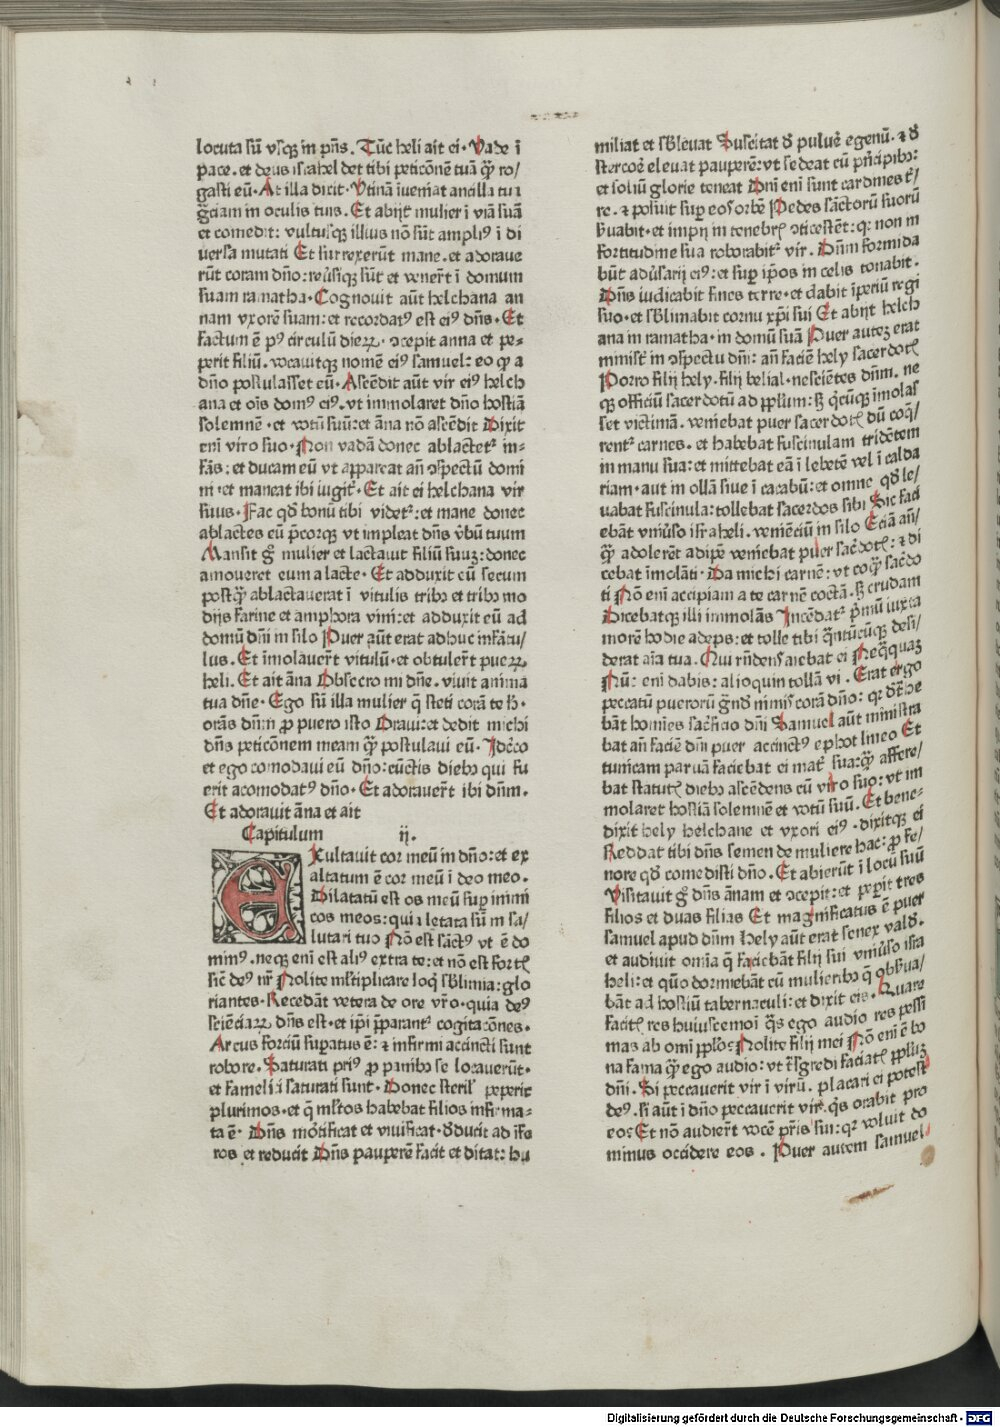 locuta sū vsqꝫ in p̄ns. Tūc heli ait ei. Vade ī
pace. et deus israhel det tibi peticōnē tuā q̄ꝫ ro/
gasti eū. At illa dicit. Vtinā īueniat ancilla tua
gr̄ciam in oculis tuis. Et abijt mulier ī viā suā
et comedit: vultusqꝫ illius nō sūt ampliꝰ ī di
uersa mutati Et surrexerūt mane. et adoraue
rūt coram dn̄o: reūsiqꝫ sūt et venerūt ī domum
suam ramatha. Cognouit aūt helchana an
nam vxorē suam: et recordatꝰ est eiꝰ dn̄s. Et
factum ē pꝰ circulū dieꝝ. ꝯcepit anna et pe-
perit filiū. vocauitqꝫ nomē eiꝰ samuel: eo qꝫ a
dn̄o postulasset eū. Ascēdit aūt vir eiꝰ helch
ana et oīs domꝰ eiꝰ. vt immolaret dn̄o hostiā
solemnē. et votū suū: et āna nō ascēdit Dixit
enī viro suo. Non vadā donec ablactetꝛ in-
fās: et ducam eū vt appareat an̄ ꝯspectū domi
ni. et maneat ibi iugit̛. Et ait ei helchana vir
suus. Fac qd̄ bonū tibi videtꝛ: et mane donec
ablactes eū p̄corqꝫ vt impleat dn̄s v̄bū tuum
Mansit gͦ mulier et lactauit filiū suuꝫ: donec
amoueret eum a lacte. Et adduxit eū secum
postq̄ꝫ ablactauerat ī vitulis tribꝰ et tribꝰ mo
dijs farine et amphora vini: et adduxit eū ad
domū dn̄i in silo Puer aūt erat adhuc infātu/
lus. Et īmolauer̄t vitulū. et obtuler̄t pueꝝ
heli. Et ait āna Obsecro mi dn̄e. viuit anima
tua dn̄e. Ego sū illa mulier q̄ steti corā te h̄.
orās dn̄m ꝓ puero isto Oraui: et dedit michi
dn̄s peticōnem meam q̄ꝫ postulaui eū. Idc̄co
et ego comodaui eū dn̄o: cūctis diebꝰ qui fu
erit acomodatꝰ dn̄o. Et adorauer̄t ibi dn̄m.
Et adorauit āna et ait
Capitulum ij.
EXultauit cor meū in dn̄o: et ex
altatum ē cor meū ī deo meo.
Dilatatū est os meū suꝑ inimi
cos meos: qui a letata sū in sa/
lutari tuo Nō est sāctꝰ vt ē do
minꝰ. neqꝫ enī est aliꝰ extra te: et nō est fortꝭ
sic̄ deꝰ nr̄ Nolite ml̄tiplicare loqͥ sb̄limia: glo
riantes. Recedāt vetera de ore vr̄o. quia deꝰ
sciēciaꝝ dn̄s est. et ip̄i p̄parantꝛ cogitacōnes.
Arcus forciū suꝑatus ē: ⁊ infirmi accincti sunt
robore. Saturati priꝰ ꝓ panibꝰ se locauerūt.
et famelici saturati sunt. Donec steril̛ peperit
plurimos. et q̄ ml̄tos habebat filios infirma-
ta ē. Dn̄s mōtificat et viuificat. dducit ad īfe
ros et reducit Dn̄s pauperē facit et ditat: hu
miliat et sb̄leuat Suscitat d̄ puluē egenū. ⁊ d̄
stercoē eleuat pauperē: vt sedeat cū pn̄cipibꝰ:
et soliū glorie teneat Dn̄i enī sunt cardines t̄r/
re. ⁊ posuit suꝑ eos orbē Pedes sāctorū suorū
ẜuabit. et impij in tenebrꝭ ꝯticescēt: qꝛ non in
fortitudine sua roborabitꝛ vir. Dn̄m formida
būt adūsarij eiꝰ: et suꝑ ip̄os in celis tonabit.
Dn̄s iudicabit fines terre. et dabit īperiū regi
suo. et sb̄limabit cornu xp̄i sui Et abijt helch
ana in ramatha. in domū suā Puer auteꝫ erat
minist̄ in ꝯspectu dn̄i: an̄ faciē hely sacerdotꝭ
Porro filij hely. filij belial. nesciētes dn̄m. ne
qꝫ officiū sacerdotū ad pp̄lum: ꝫ q̄cūqꝫ imolas
set victimā. veniebat puer sacerdotꝭ dū coq̄/
rentꝛ carnes. et habebat fuscinulam tridētem
in manu sua: et mittebat eā ī lebetē vel ī calda
riam. aut in ollā siue ī cacabū: et omne qd̄ le/
uabat fuscinula: tollebat sacerdos sibi Sic faci
ebāt vniuso israheli. veniēciū in silo Eciā an̄/
q̄ꝫ adolerēt adipē veniebat puer sac̄dotꝭ: ⁊ di
cebat īmolāti. Da michi carnē: vt coq̄ꝫ sac̄do
ti Nō enī accipiam a te carnē coctā. ꝫ crudam
Dicebatqꝫ illi immolās Incēdatꝛ p̄mū iuxta
morē hodie adeps: et tolle tibi q̄ntūcūqꝫ desi/
derat aīa tua. Qui rn̄dens aiebat ei Neq̄qꝫ
Nū: enī dabis: alioquin tollā vi. Erat ergo
peccatū puerorū gr̄nd nimis corā dn̄o: qꝛ dt̄he
bāt homīes sac̄ficio dn̄i Samuel aūt ministra
bat an̄ faciē dn̄i puer accinctꝰ ephot lineo Et
tunicam paruā faciebat ei mat̄ sua: q̄ꝫ affere/
bat statutꝭ diebꝰ ascēdens cū viro suo: vt im
molaret hostiā solemnē et votū suū. Et bene-
dixit hely helchane et vxori eiꝰ. dixitqꝫ ei
Reddat tibi dn̄s semen de muliere hac: ꝓ fe/
nore qd̄ comedisti dn̄o. Et abierūt ī locū suū
Visitauit gͦ dn̄s ānam et ꝯcepit: et peꝑit tres
filios et duas filias Et magnificatus ē puer
samuel apud dn̄m Hely aūt erat senex vald̄.
et audiuit omīa q̄ faciebāt filij sui vniūso isra
heli: et quō dormiebāt cū mulieribꝰ q̄ obẜua/
bāt ad hostiū tabernaculi: et dixit eis. Quare
facitꝭ res huiuscemōi q̄s ego audio res pessi
mas ab omī pp̄lo: Nolite filij mei Nō enī ē bo
na fama q̄ꝫ ego audio: vt t̄sgredi faciatꝭ pp̄luꝫ
dn̄i. Si peccauerit vir ī virū. placari ei potest
deꝰ. si aūt ī dn̄o peccauerit vir. q̄s orabit pro
eo: Et nō audier̄t vocē pr̄is sui: qꝛ voluit do
minus occidere eos. Puer autem samuel
Digitalisierung gefördert durch die Deutsche Forschungsgemeinschaft - DFG